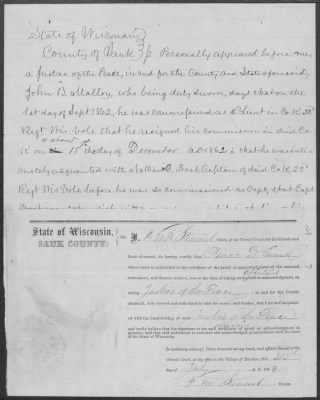 State of Wisconsin
County of Sauk } ss Personally appeared before me,
a Justice of the Peace, in and for the County and State aforesaid,
John B. Malloy, who being duly sworn, says that on the
1st day of Sept 1862, he was commissioned as 2 Lieut in Co K 23d
Regt Wis. Vols. that he resigned his commission in said Co.
K on or about 18th day of December A D 1862 & that he was inti-
mately acquainted with Nathan Frost Captain of said Co. K 23d
Regt Wis Vols before he was so commissioned as Capt, that Capt
State of Wisconsin,
SAUK COUNTY.
I,
Clerk of the Circuit Court for the County and
State aforesaid, do hereby certify that
whose name is subscribed to the certificate of the proof or acknowledgment of the annexed
instrument, and therein written, was, at the time of taking such proof or acknowledgment, an
acting Justice of the Peace in and for the County
aforesaid, duly sworn and authorized to take the same; and further, that I am well acquainted
with the hand-writing of such Justice of the Peace
and verily believe that the signature to the said certificate of proof or acknowledgment is
genuine, and that said instrument is executed and acknowledged in accordance with the laws
of the State of Wisconsin.
In testimony whereof, I have hereunto set my hand and affixed the seal of the
Circuit Court,
day of July A. D. 186
Clerk.